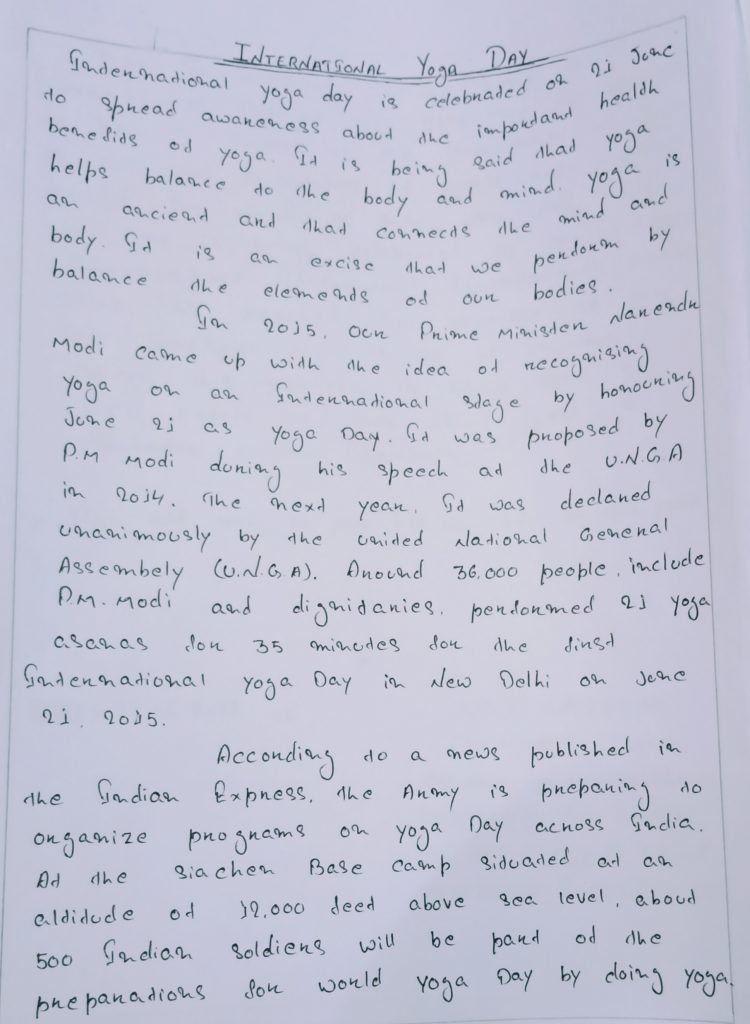 INTERNATIONAL Yoga DAY
International yoga day is celebrated on 21 June
to spread awareness about the important health
benefits of yoga. It is being said that yoga
helps balance to the body and mind. yoga is
an ancient and that connects the mind and
body. It is an excise that we perform by
balance the elements of our bodies.
In 2015, our Prime Minister Narendr
Modi came up with the idea of recognising
yoga on an International stage by honouring
June 21 as yoga Day. It was proposed by
P.M Modi during his speech at the U.N.G.A
in 2014. The next year, It was declared
unanimously by the united National General
Assembely (U.N.G.A). Around 36,000 people, include
P.M. Modi and dignitaries, performed 21 yoga
asanas for 35 minutes for the first
International yoga Day in New Delhi on June
21, 2015.
According to a news published in
the Indian Express, the Army is preparing to
organize programs on yoga Day across India.
At the siachen Base camp situated at an
altitude of 12,000 feet above sea level, about
500 Indian soldiers will be part of the
preparations for world yoga Day by doing yoga.